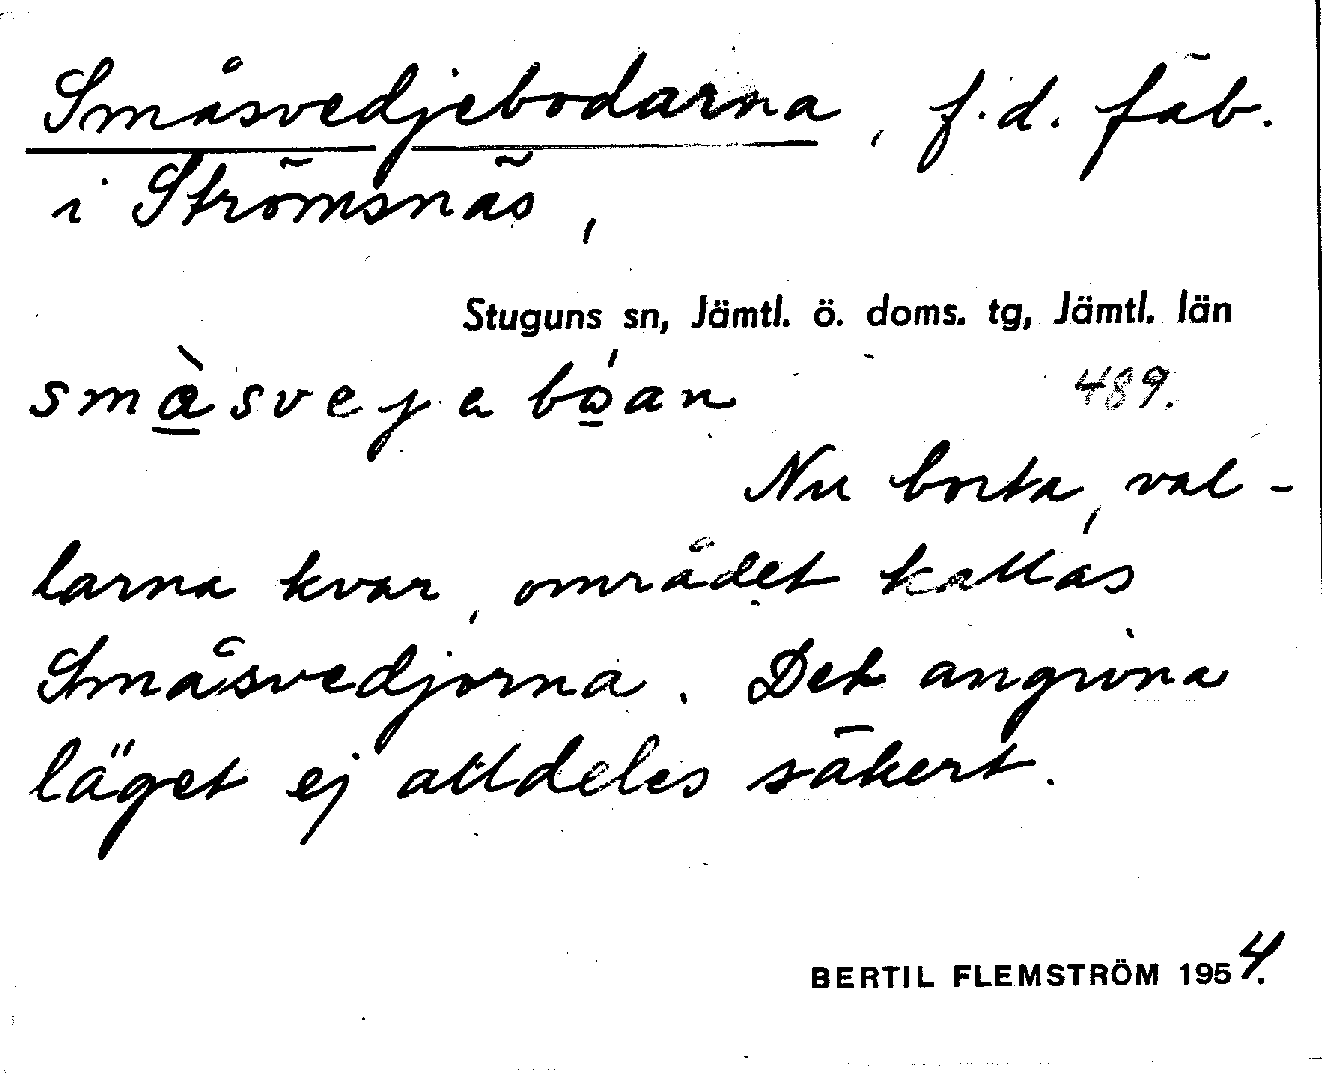 Småsvedjebodarna, f.d. fäb.
i Strömsnäs,
Stuguns sn, Jämtl. ö. doms. tg, Jämtl. län
489.
Nu borta, val-
larna kvar, området kallas
Småsvedjorna. Det angivna
läget ej alldeles säkert.
BERTIL FLEMSTRÖM 1954.